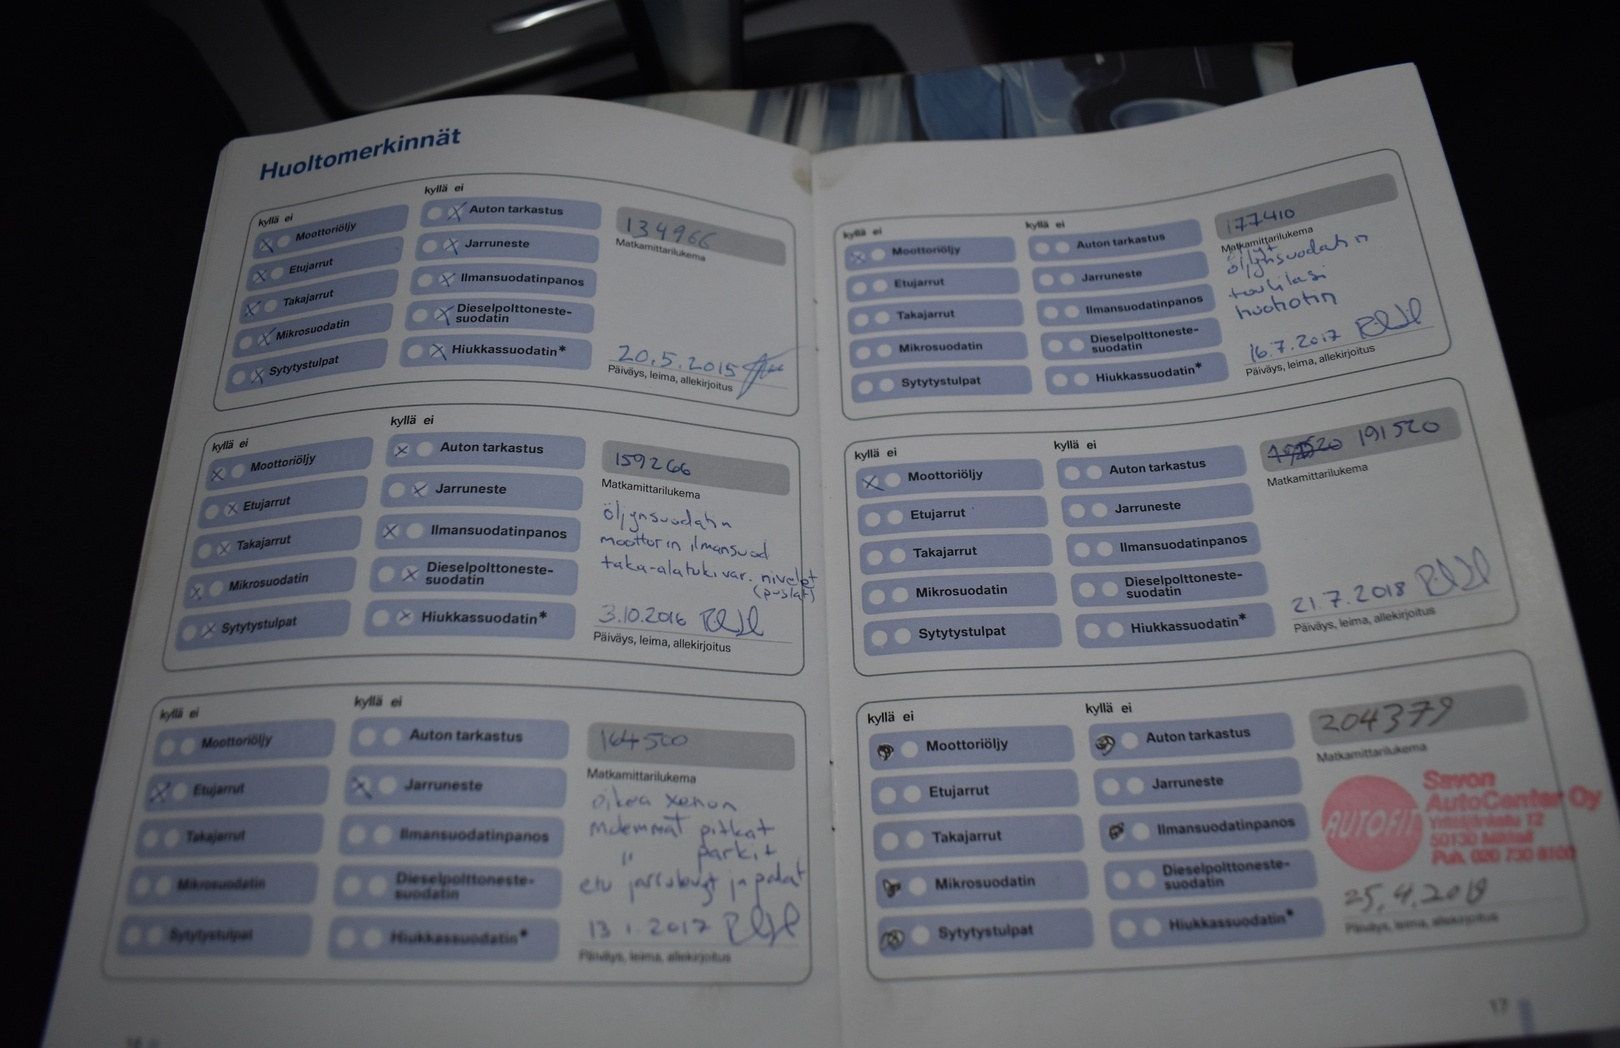 Huoltomerkinnät
kyllä ei
Moottoriöljy
Etujarrut
Takajarrut
Mikrosuodatin
Sytytystulpat
kyllä ei
Auton tarkastus
Jarruneste
Ilmansuodatinpanos
Dieselpolttoneste-
suodatin
Hiukkassuodatin*
134966
Matkamittarilukema
20.5.2015
Päiväys, leima, allekirjoitus
kyllä ei
Moottoriöljy
Etujarrut
Takajarrut
Mikrosuodatin
Sytytystulpat
kyllä ei
Auton tarkastus
Jarruneste
Ilmansuodatinpanos
Dieselpolttoneste-
suodatin
Hiukkassuodatin*
159266
Matkamittarilukema
öljynsuodatin
moottorin ilmansuod
taka-alatukivar. nivelet
(puslat)
3.10.2016
Päiväys, leima, allekirjoitus
kyllä ei
Moottoriöljy
Etujarrut
Takajarrut
Mikrosuodatin
Sytytystulpat
kyllä ei
Auton tarkastus
Jarruneste
Ilmansuodatinpanos
Dieselpolttoneste-
suodatin
Hiukkassuodatin*
164500
Matkamittarilukema
oikea xenon
molemmat pitkat
" parkit
etu jarrulevyt ja palat
13 1.2017
Päiväys, leima, allekirjoitus
kyllä ei
Moottoriöljy
Etujarrut
Takajarrut
Mikrosuodatin
Sytytystulpat
kyllä ei
Auton tarkastus
Jarruneste
Ilmansuodatinpanos
Dieselpolttoneste-
suodatin
Hiukkassuodatin*
177410
Matkamittarilukema
öljyt
öljynsuodatin
tuulilasi
huohotin
16.7.2017
Päiväys, leima, allekirjoitus
kyllä ei
Moottoriöljy
Etujarrut
Takajarrut
Mikrosuodatin
Sytytystulpat
kyllä ei
Auton tarkastus
Jarruneste
Ilmansuodatinpanos
Dieselpolttoneste-
suodatin
Hiukkassuodatin*
191520
Matkamittarilukema
21.7.2018
Päiväys, leima, allekirjoitus
kyllä ei
Moottoriöljy
Etujarrut
Takajarrut
Mikrosuodatin
Sytytystulpat
kyllä ei
Auton tarkastus
Jarruneste
Ilmansuodatinpanos
Dieselpolttoneste-
suodatin
Hiukkassuodatin*
204379
Matkamittarilukema
AUTOFIT
Savon
AutoCenter Oy
Yrittäjänkatu 12
50130 Mikkeli
Puh. 020 730 8100
25.4.2019
Päiväys, leima, allekirjoitus
17